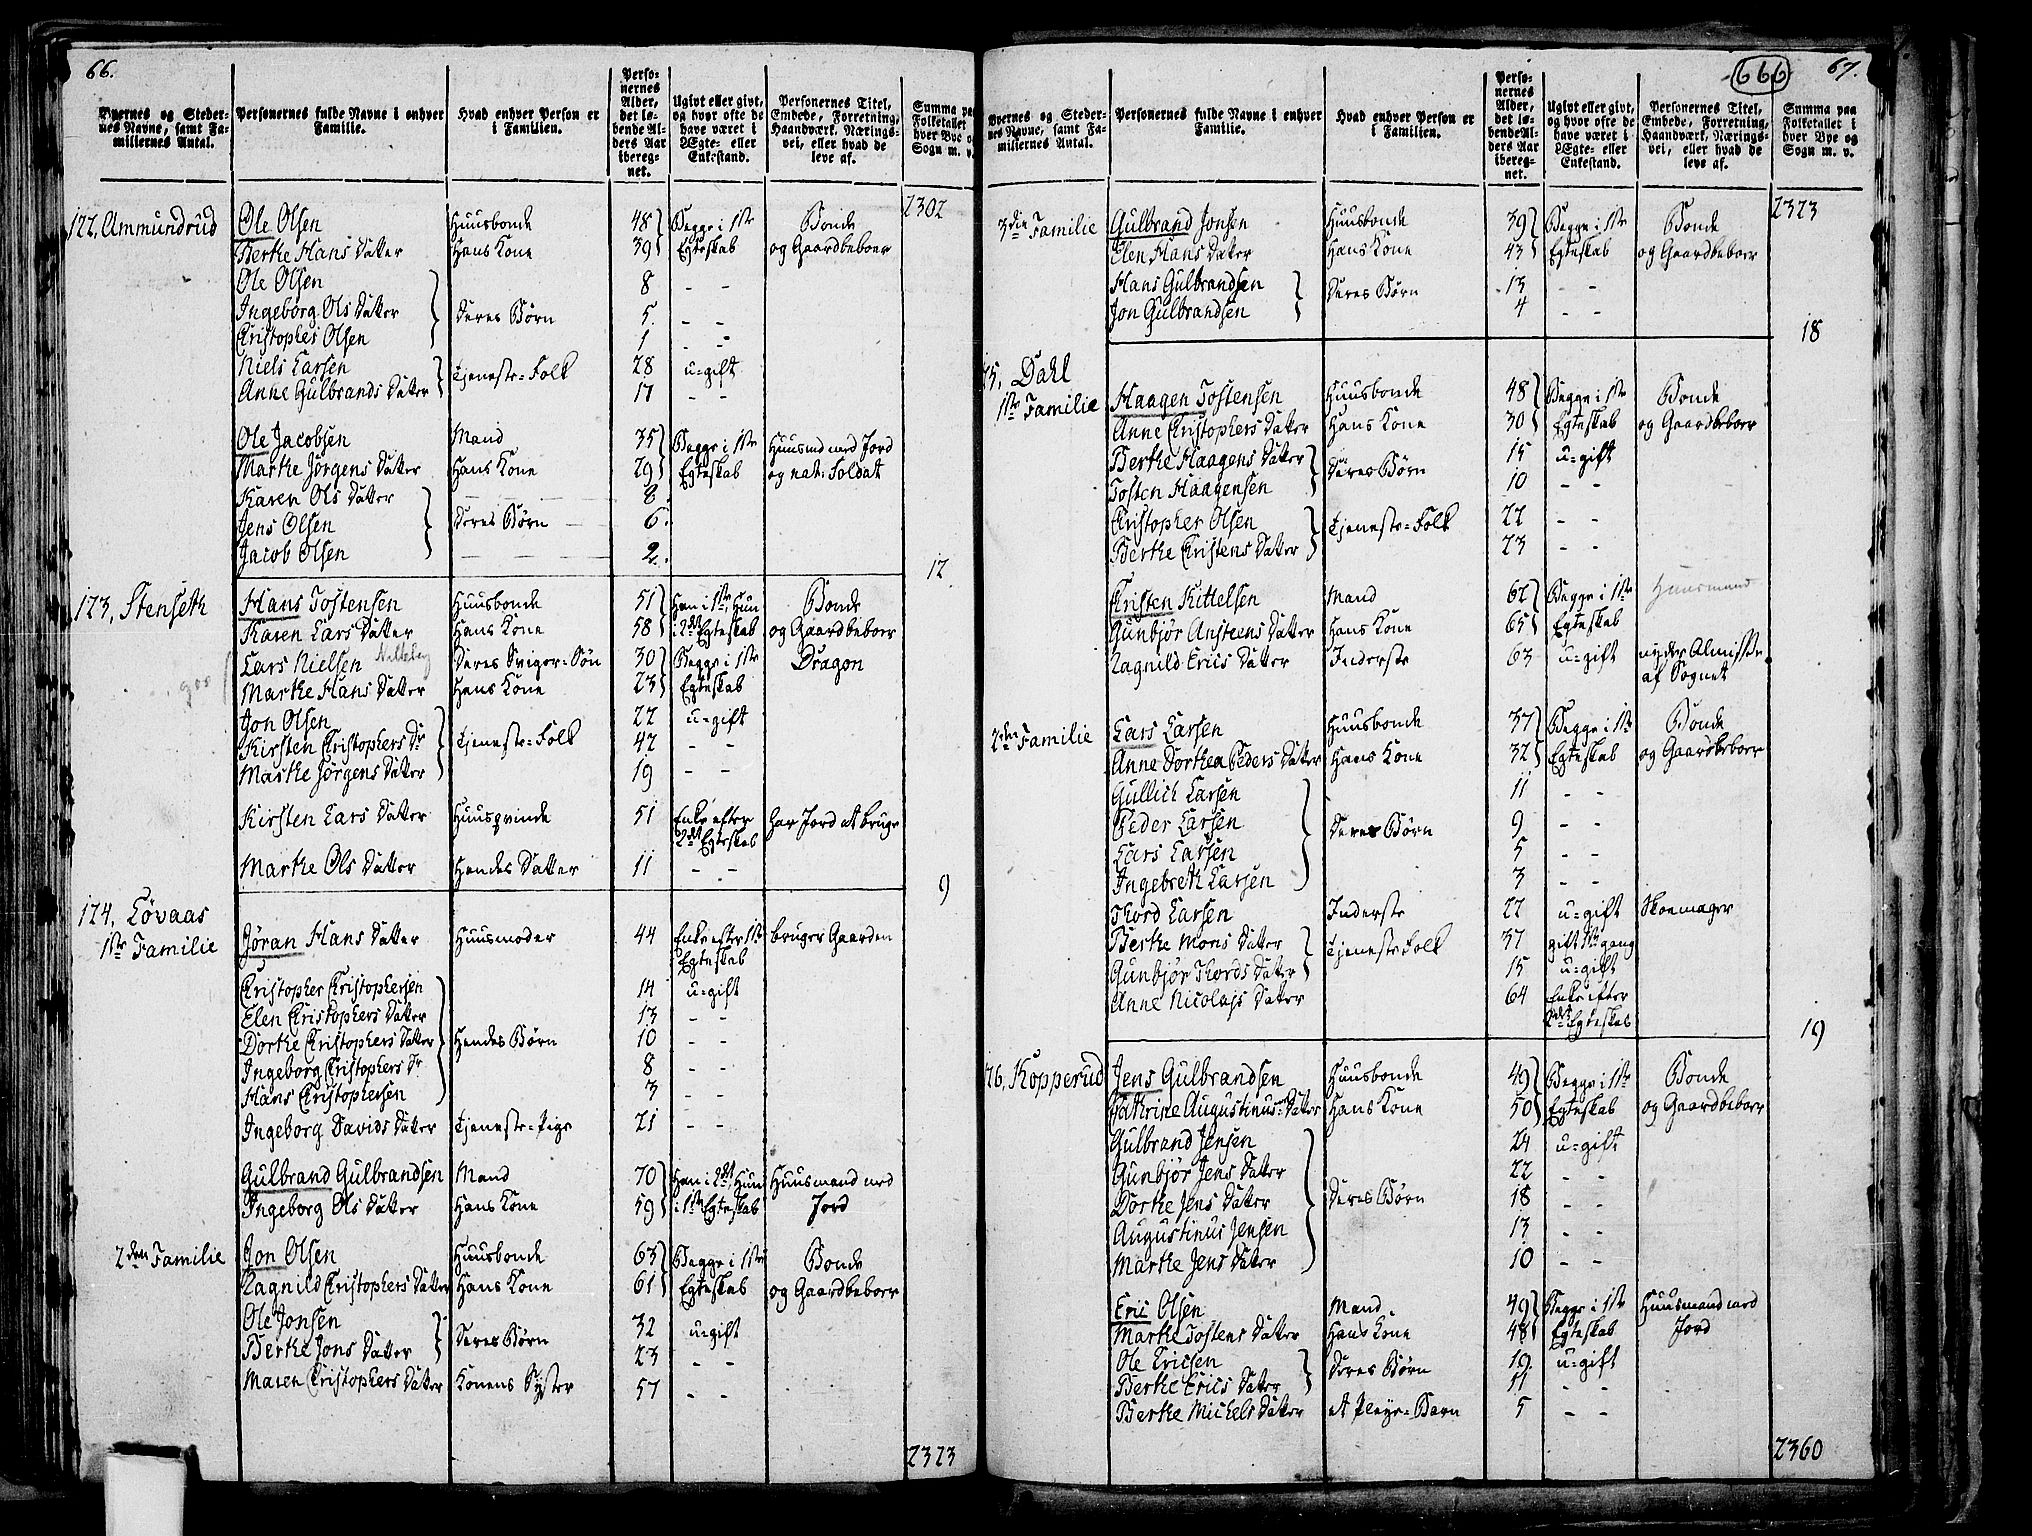 66.
Byernes og Steder-
nes Navne, samt Fa-
miliernes Antal.
Personernes fulde Navne i enhver
Familie.
Hvad enhver Person er
i Familien.
Perso-
nernes
Alder,
det lø-
bende Al-
ders Aar
ibereg-
net.
Ugivt eller givt,
og hvor ofte de
have været i
Ægte- eller
Enkestand.
Personernes Titel,
Embede, Forretning,
Haandværk, Nærings-
vei, eller hvad de
leve af.
Summa paa
Folketallet i
hver Bye og
Sogn m. v.
2302
122, Ammundrud Ole Olsen Huusbonde 48 Begge i 1ste Bonde
Berthe Hans Datter Hans Kone 39 Egteskab og Gaardbeboer
Ole Olsen 8 - -
Ingeborg Ols Datter Deres Børn 5. - -
Christopher Olsen 1 - -
Niels Larsen Tjeneste-Folk 28 u-gift
Anne Gulbrands Datter 17 - -
Ole Jacobsen Mand 35 Begge i 1ste Huusmd med Jord
Marthe Jørgens Datter Hans Kone 29 Egteskab og nat: Soldat
Karen Ols Datter 8.
Jens Olsen Deres Børn 6.
Jacob Olsen 2.
12
123, Stenseth Hans Tostensen Huusbonde 51 Han i 1ste, Hun Bonde
Karen Lars Datter Hans Kone 58 i 2det Egteskab og Gaardbeboer
Lars Nielsen Deres Sviger-Søn 30 Begge i 1ste Dragon
Marthe Hans Datter Hans Kone 23 Egteskab
Jon Olsen 22 u-gift
Kirsten Christophers Dr Tjeneste-Folk 42 - -
Marthe Jørgens Datter 19 - -
Kirsten Lars Datter Huusqvinde 51 Enke efter har Jord at bruge
2det Egteskab
Marthe Ols Datter Hendes Datter 11 - -
9
124, Løvaas
1ste Familie Jøran Hans Datter Huusmoder 44 Enke efter 1ste bruger Gaarden
Egteskab
Christopher Christophersen 14 u-gift
Elen Christophers Datter 13 - -
Dorthe Christophers Datter Hendes Børn 10 - -
Ingeborg Christophers Dr 8 - -
Hans Christophersen 3 - -
Ingeborg Davids Datter Tjeneste-Pige 21 - -
Gulbrand Gulbrandsen Mand 70 Han i 2det, Hun Huusmand med
Ingeborg Ols Datter Hans Kone 59 i 1ste Egteskab Jord
2den Familie Jon Olsen Huusbonde 63 Begge i 1ste Bonde
Ragnild Christophers Datter Hans Kone 61 Egteskab og Gaardbeboer
Ole Jonsen Deres Børn 32 u-gift
Berthe Jons Datter 23 - -
Maren Christophers Datter Konens Syster 57 - -
2323
666
67.
Byernes og Steder-
nes Navne, samt Fa-
miliernes Antal.
Personernes fulde Navne i enhver
Familie.
Hvad enhver Person er
i Familien.
Perso-
nernes
Alder,
det lø-
bende Al-
ders Aar
ibereg-
net.
Ugivt eller givt,
og hvor ofte de
have været i
Ægte- eller
Enkestand.
Personernes Titel,
Embede, Forretning,
Haandværk, Nærings-
vei, eller hvad de
leve af.
Summa paa
Folketallet i
hver Bye og
Sogn m. v.
2323
3die Familie Gulbrand Jonsen Huusbonde 39 Begge i 1ste Bonde
Elen Hans Datter Hans Kone 43 Egteskab og Gaardbeboer
Hans Gulbrandsen Deres Børn 13 - -
Jon Gulbrandsen 4 - -
18
25, Dahl
1ste Familie Haagen Tostensen Huusbonde 48 Begge i 1ste Bonde
Anne Christophers Datter Hans Kone 30 Egteskab og Gaardbeboer
Berthe Haagens Datter Deres Børn 15 u-gift
Tosten Haagensen 10 - -
Christopher Olsen Tjeneste-Folk 22 - -
Berthe Christens Datter 23 - -
Christen Kittelsen Mand 62 Begge i 1ste Huusmand
Gunbjør Ansteens Datter Hans Kone 65 Egteskab
Ragnild Erics Datter Inderste 63 u-gift nyder Almisse
af Sognet
2den Familie Lars Larsen Huusbonde 37 Begge i 1ste Bonde
Anne Dorthea Peders Datter Hans Kone 32 Egteskab og Gaardbeboer
Gullich Larsen 11 - -
Peder Larsen Deres Børn 9 - -
Lars Larsen 5 - -
Ingebreth Larsen 3 - -
Thord Larsen Inderste 22 u-gift Skoemager
Berthe Mons Datter Tjeneste Folk 37 gift 1ste gang
Gunbjør Thords Datter 15 u-gift
Anne Nicolajs Datter 64 Enke efter
2det Egteskab
19
26, Kopperud Jens Gulbrandsen Huusbonde 49 Begge i 1ste Bonde
Cathrine Augustinus Datter Hans Kone 50 Egteskab og Gaardbeboer
Gulbrand Jensen 24 u-gift
Gunbjør Jens Datter 22 - -
Dorthe Jens Datter Deres Børn 18 - -
Augustinus Jensen 13 - -
Marthe Jens Datter 10 - -
Eric Olsen Mand 49 Begge i 1ste Huusmand med
Marthe Tostens Datter Hans Kone 48 Egteskab Jord
Ole Ericsen Deres Børn 19 u-gift
Berthe Erics Datter 11 - -
Berthe Michels Datter et Pleye-Barn 5 - -
2360